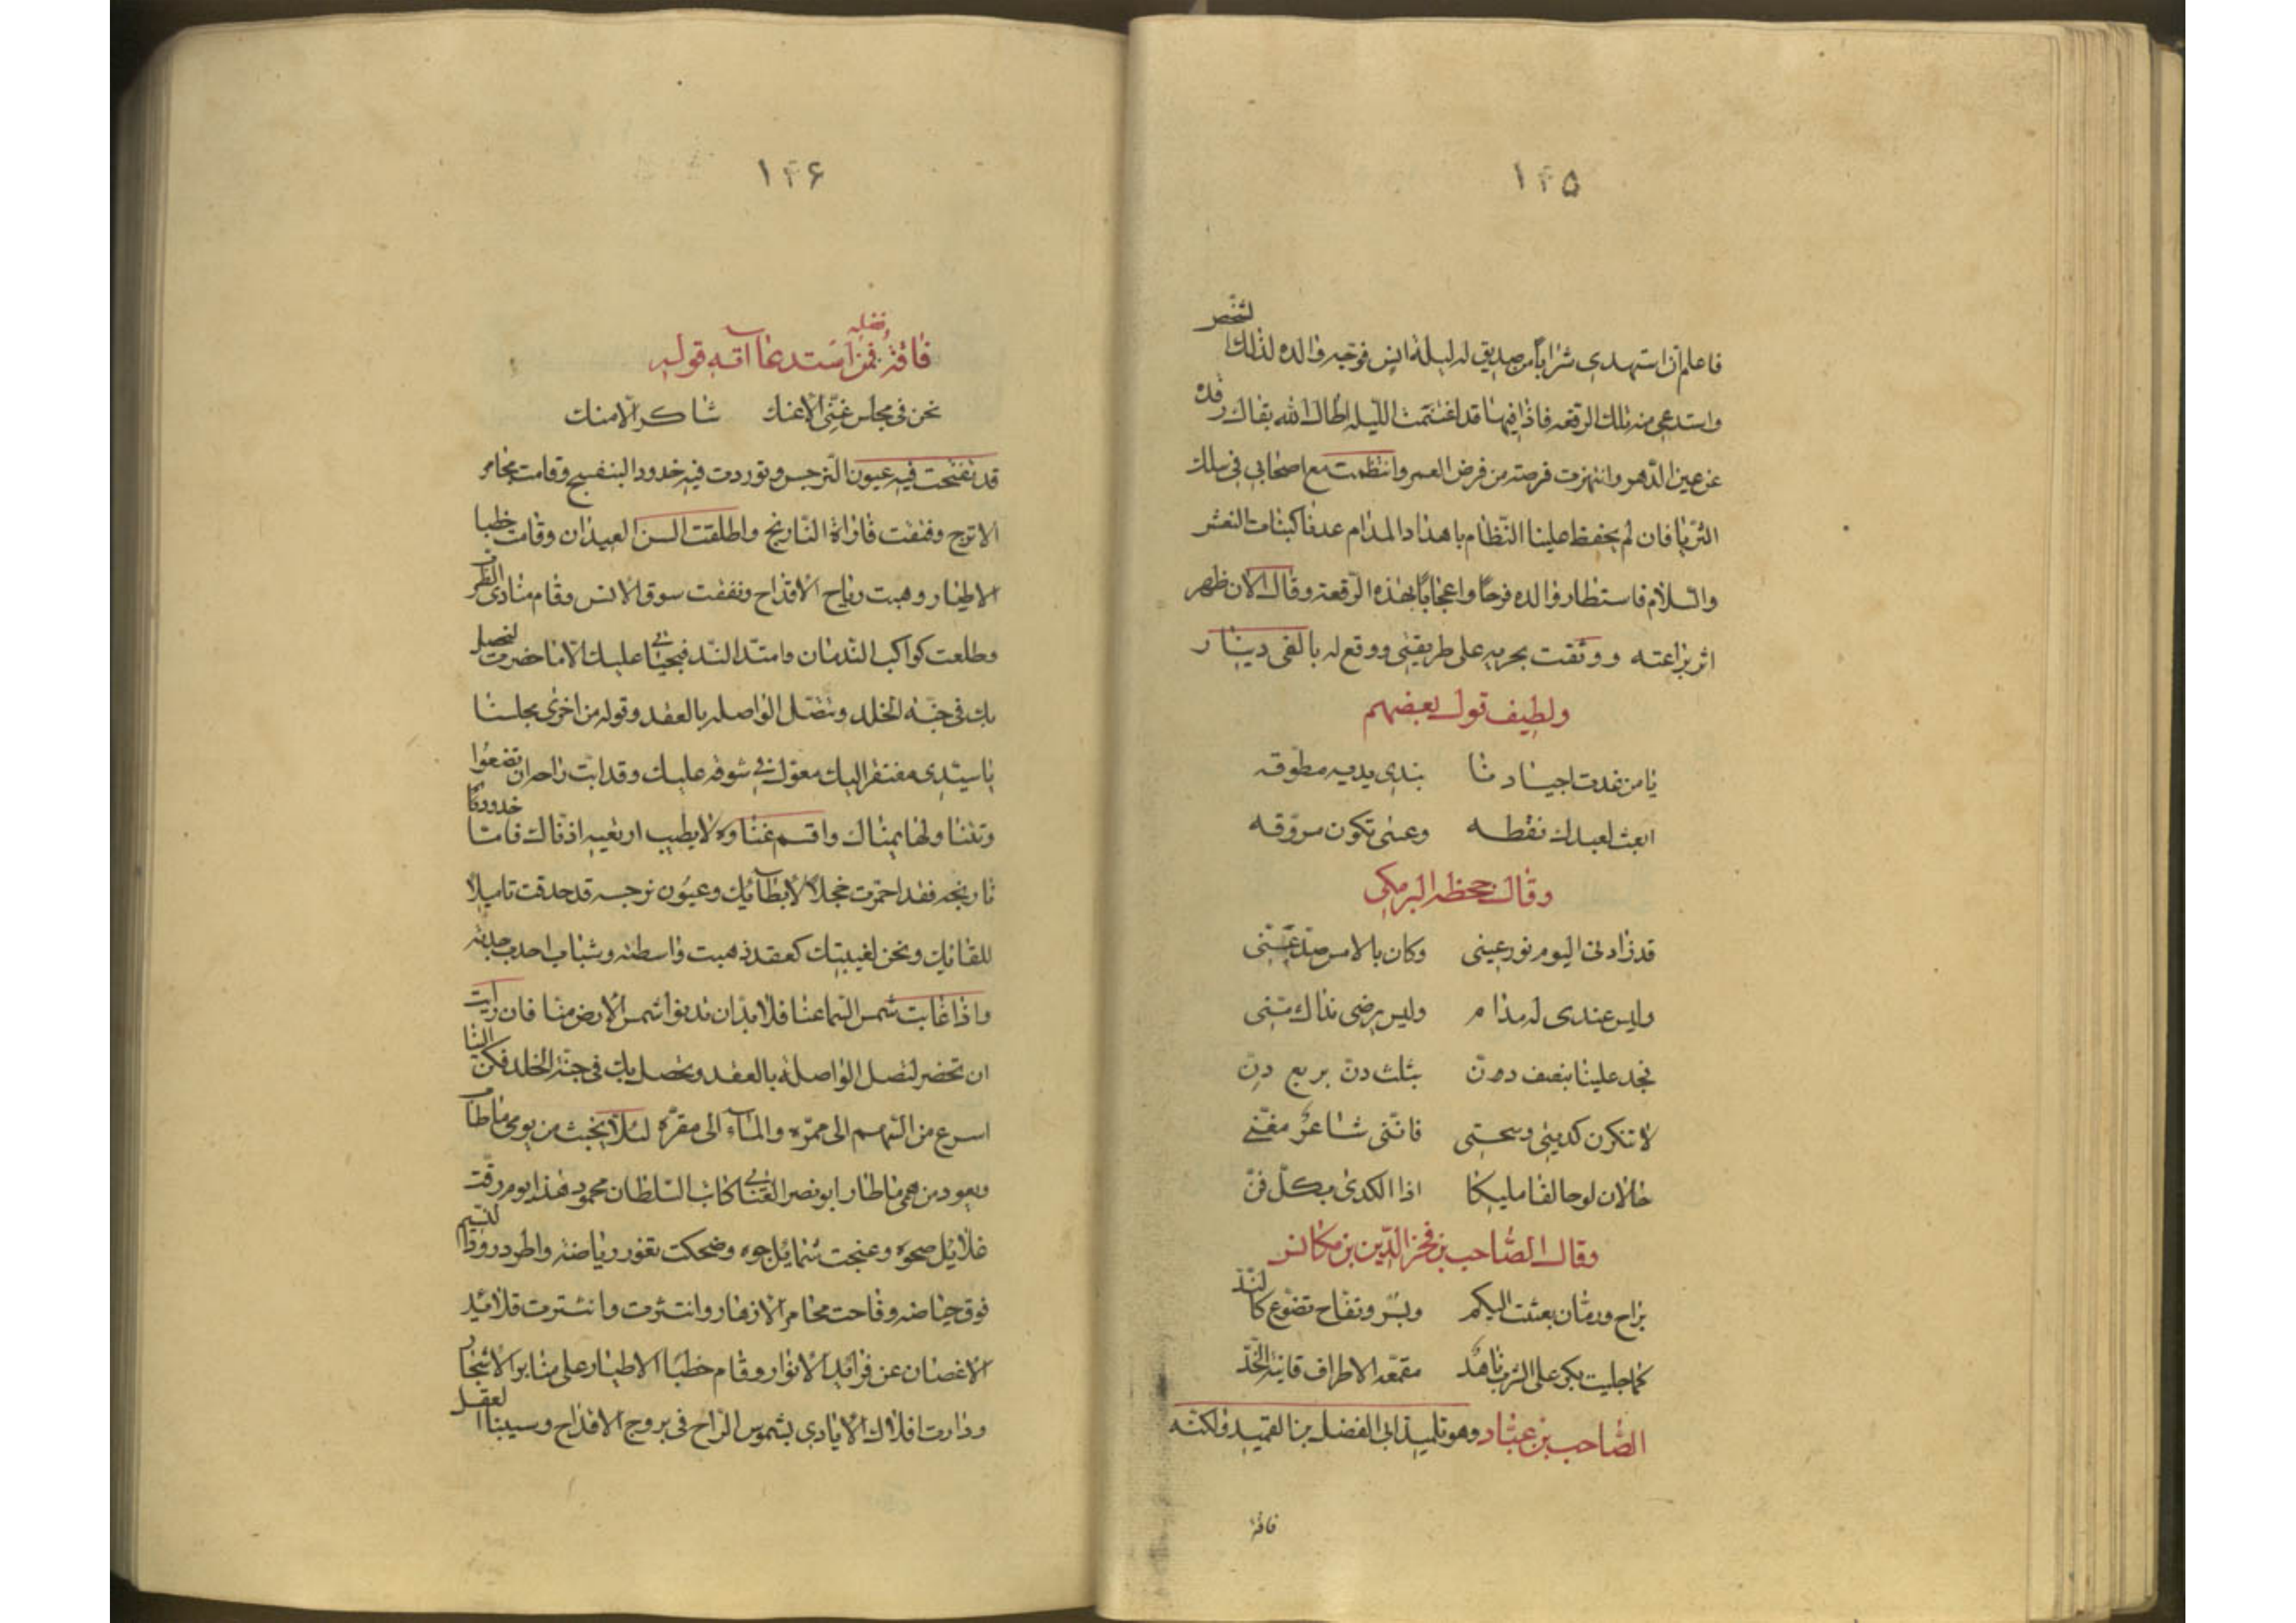 ۱۴۵
فاعلم ان استهدى شرابا من صديق له ليلة انس فوجه والده لذلك الشخص
واستدعى منه تلك الرقعه فاذا فيها قد اغتنمت الليله اطال الله بقاك رقدة
عن عين الدهر وانتهزت فرصته من فرض العمر وانتظمت مع اصحابي في سلك
الثريا فان لم يحفظ علينا النظام باهداء المدام عدنا كبنات النعش
والسلام فاستطار والده فرحًا واعجابًا بهذه الرقعة وقال الان ظهر
اثر براعته ووثقت بجريه على طريقتى ووقع له بالفى دينار
ولطيف قول بعضهم
يا من غدت اجيادنا بندى يديه مطوقه
ابعث لعبدك نقطه وعسى تكون مروقه
وقال جحظه البرمكى
قد زادنى اليوم نور عينى وكان بالامس صد عنى
وليس عندى له مدام وليس يرضى بذاك منى
فجد علينا بنصف دن بثلث دن بربع دن
لا تنكرن كديتى وسحتى فاننى شاعر مغنى
خالان لو حالفا مليكا اذا الكدى بكل فن
وقال الصاحب بن فخر الدين بن مكانس
براح ورمان بعثت اليكم وبسر وتفاح تضوع كالند
كما جليت بكر على الترب ناهد مقمعه الاطراف قانية الخد
الصاحب بن عباد وهو تلميذ ابى الفضل بن العميد ولكنه
فاقه
۱۴۶
فاقه فضله فمن استدعاآته قوله
نحن فى مجلس غنى الا عنك شاكر الا منك
قد تفتحت فيه عيون النرجس وتوردت فيه خدود البنفسج وقامت مجامر
الاترج وفتقت فارات النارنج واطلقت السن العيدان وقامت خطبا
الاطيار وهبت رياح الاقداح ونفقت سوق الانس وقام منادى الطرب
وطلعت كواكب الندمان وامتد الند فبحياتى عليك الا ما حضرت لنحصل
بك فى جنه الخلد ونتصل الواصله بالعقد وقوله من اخرى مجلسنا
يا سيدى مفتقر اليك معول فى شوقه عليك وقد ابت راحه ان تصفوا
وتننا ولها يمناك واقسم غناوه لا يطيب او تعيه اذناك فاما خدود
نارنجه فقد احمرت خجلا لابطائك وعيون نرجسه قد حدقت تاميلا
للقائك ونحن لغيبتك كعقد ذهبت واسطته وشباب احدث جدته
واذا غابت شمس السما عنا فلا بد ان تدنوا شمس الارض منا فان رايت
ان تحضر لنصل الواصلة بالعقد ونحصل بك فى جنة الخلد فكن الينا
اسرع من السهم الى ممره والماء الى مقره لئلا يخبث من يومى ما طاب
ويعود من همى ما طار ابو نصر العتبى كاتب السلطان محمود هذا يوم رقت
غلائل صحوه وعنجت شمائل جوه وضحكت ثغور رياضه واطرد زرد النسيم
فوق حياضه وفاحت مجامر الازهار وانتثرت وانتثرت قلائد
الاغصان عن فرائد الانوار وقام خطبا الاطيار على منابر الاشجار
ودارت افلاك الايادى بشموس الراح فى بروج الاقداح وسيبنا العقل